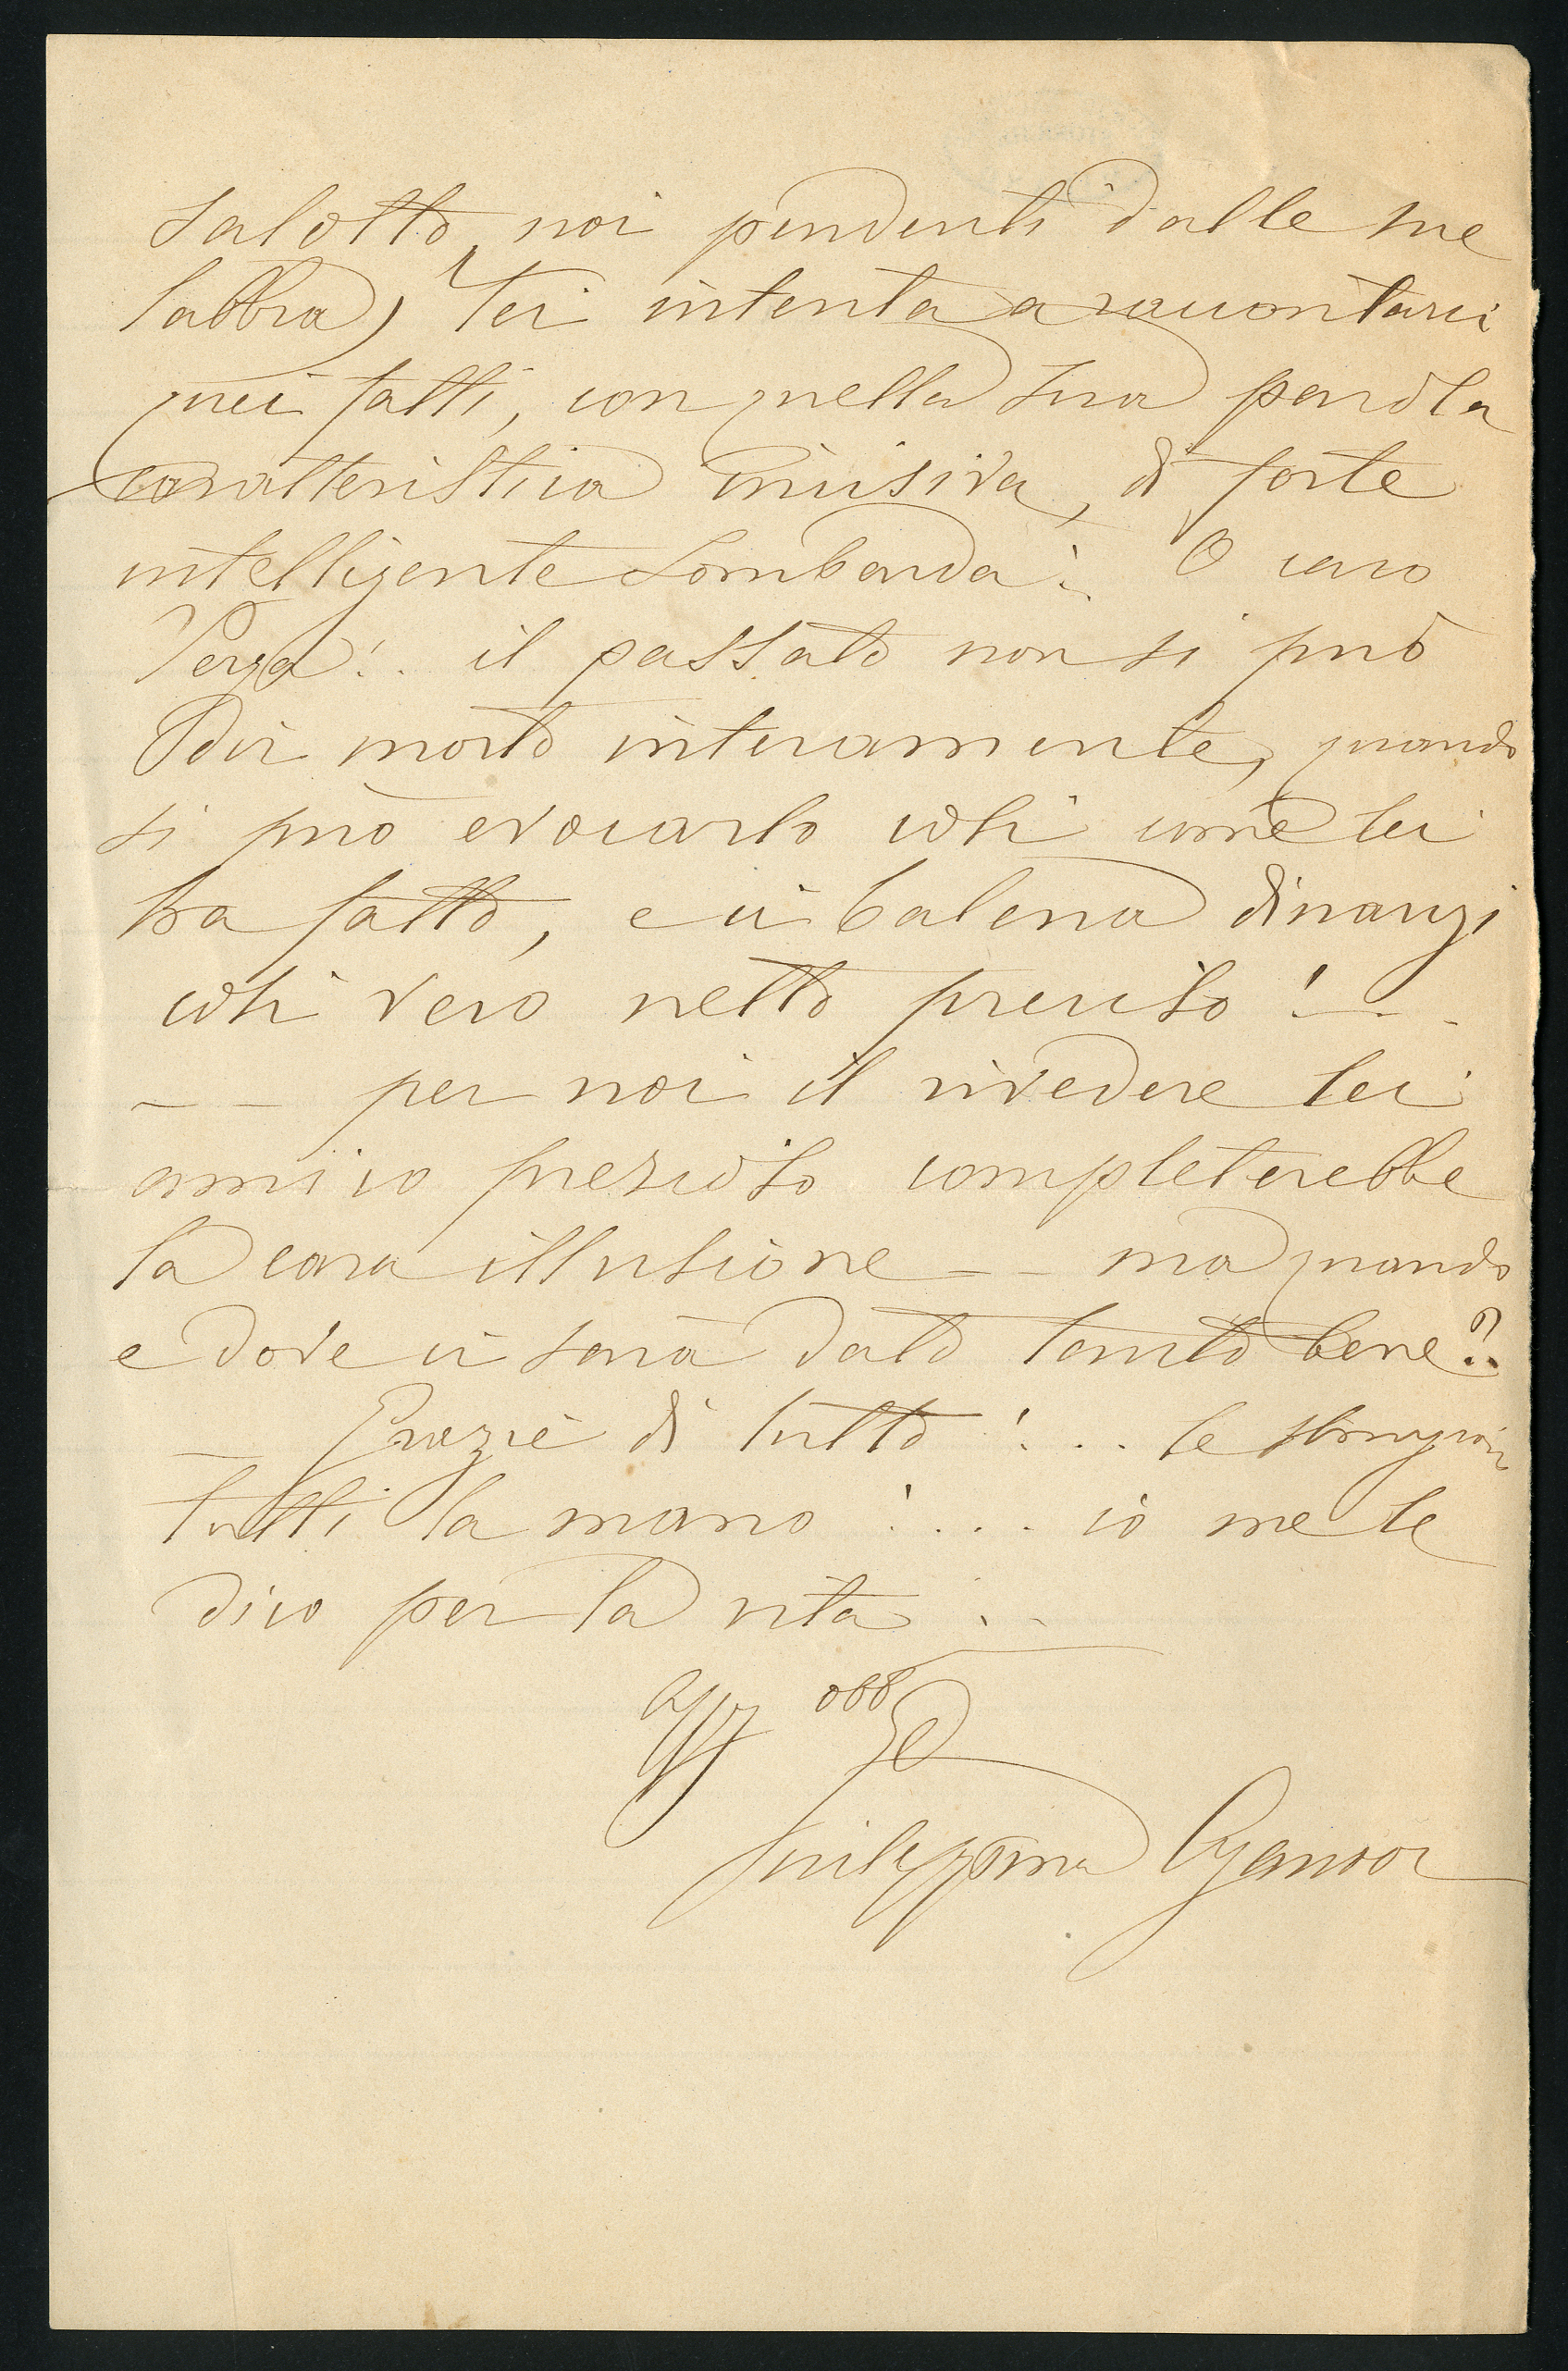 salotto, noi pendenti dalle sue
labbra, lei intenta a raccontarci
quei fatti, con quella sua parola
caratteristica incisiva, di forte
intelligente Lombarda! O caro
Verga!.. il passato non si può
dir morto interamente, quando
si può evocarlo così come lei
ha fatto, e ci balena dinanzi
così vero netto preciso! - . -
- - per noi il rivedere lei
amico prezioso completerebbe
la cara illusione - - ma quando
e dove ci sarà dato tanto bene?..
- Grazie di tutto!... le stringiam
tutti la mano!.... io me le
dico per la vita..
Aff obb